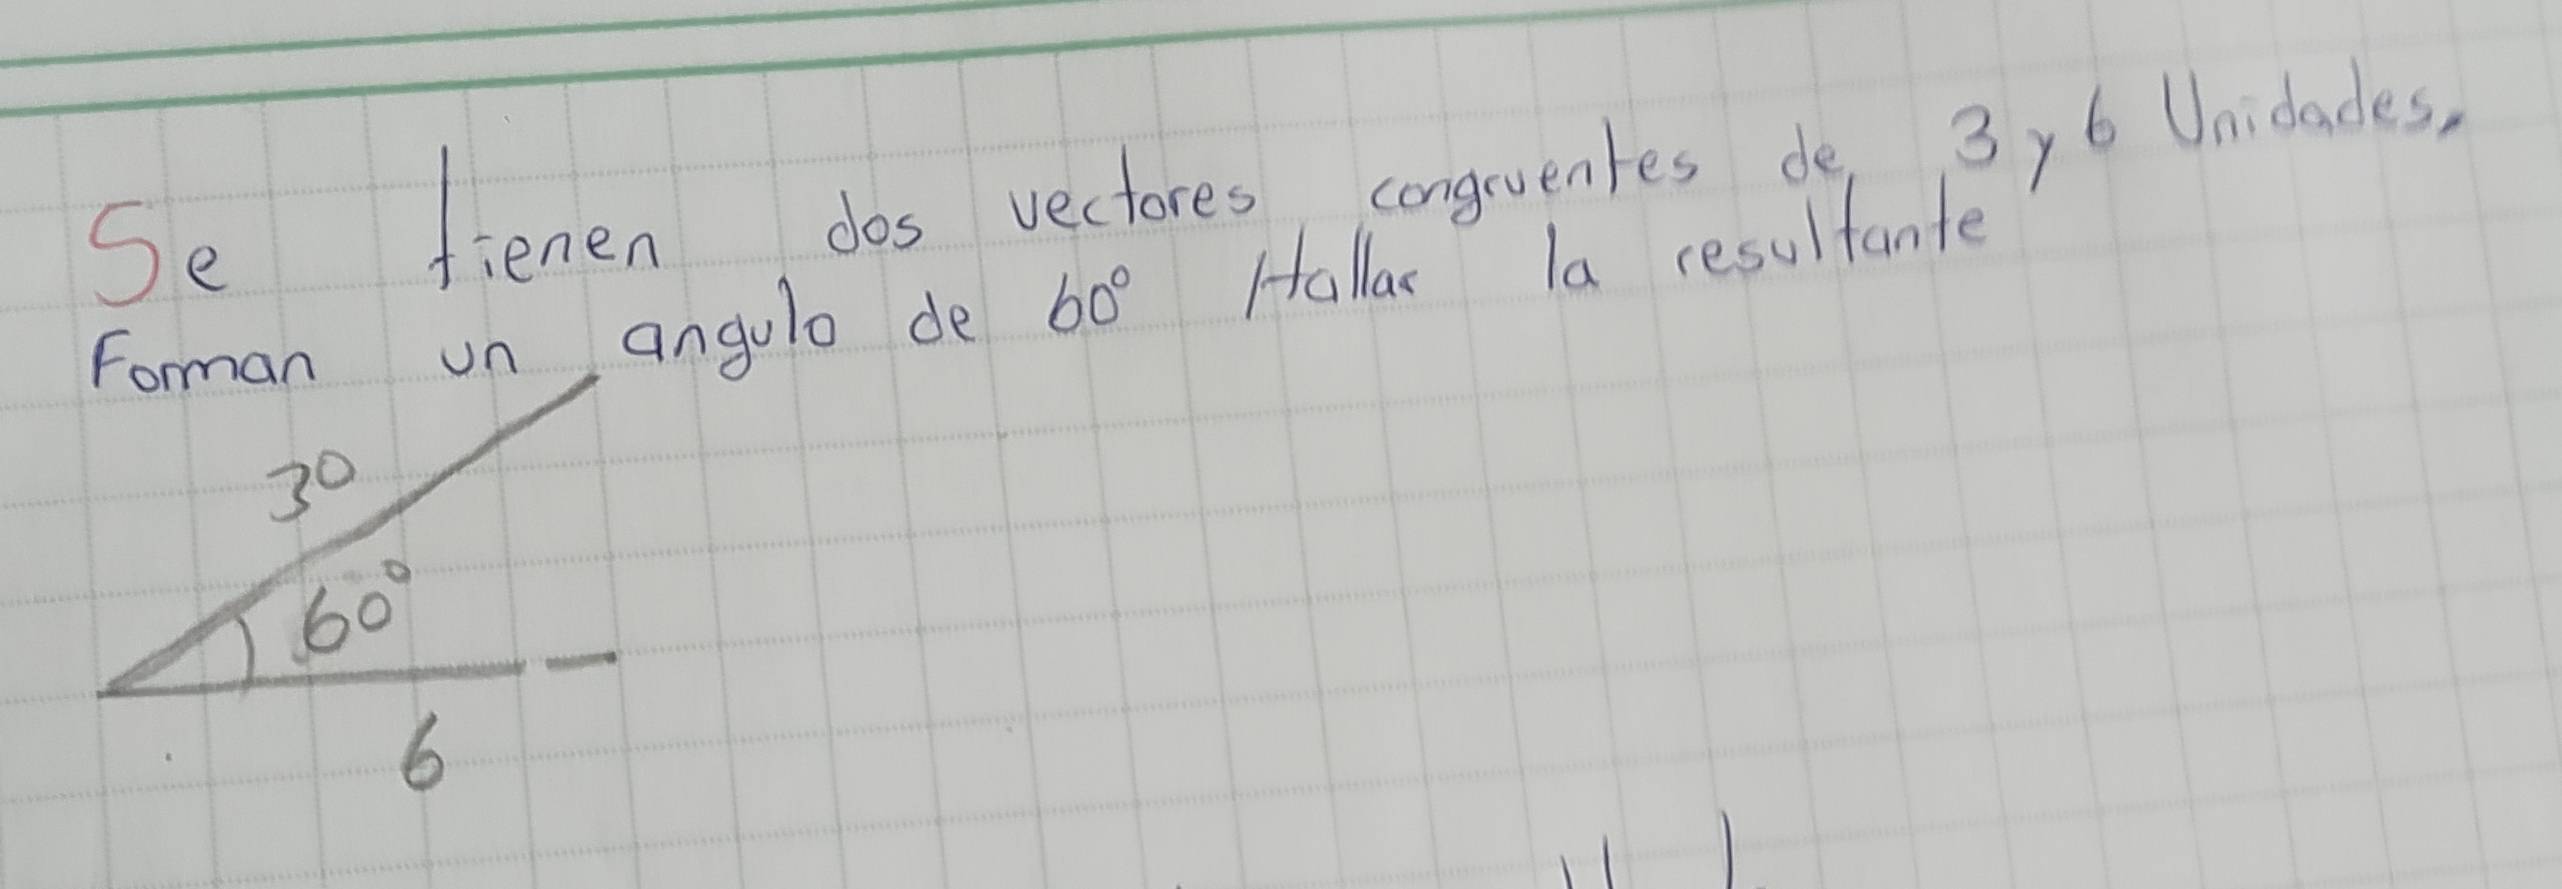 Se tienen dos vectores congruentes de 3 y 6 Unidades.
Forman un angulo de 60° Hallar la resultante
3°
60°
6